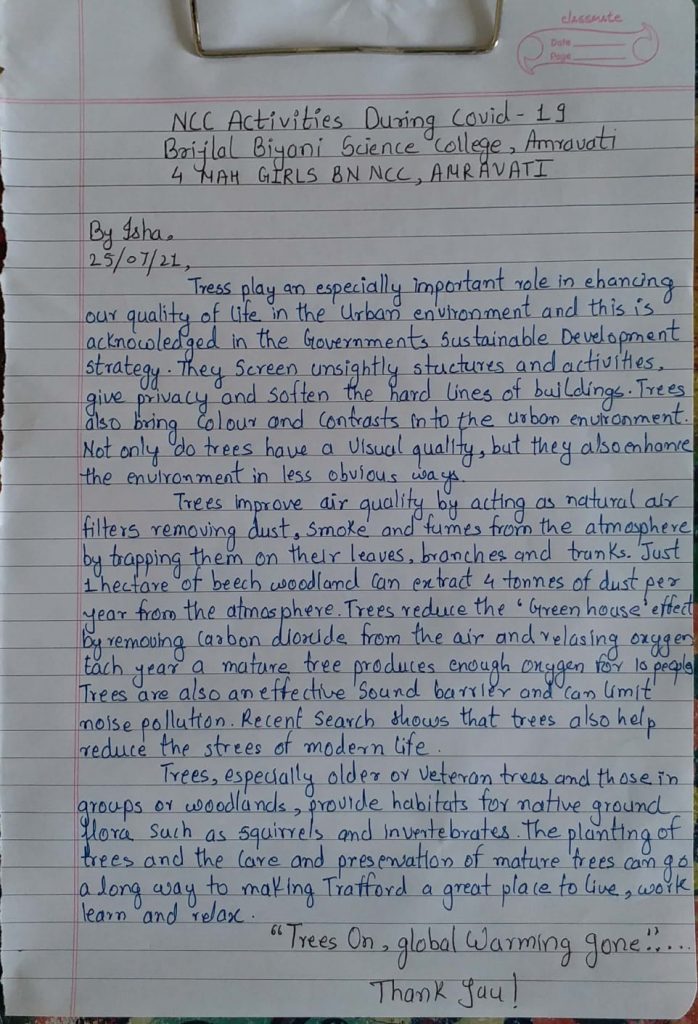 classmate
Date
Page
NCC Activities During Covid-19
Brijlal Biyani Science College, Amravati
4 MAH GIRLS BN NCC, AMRAVATI
By Isha.
25/07/21,
Tress play an especially important role in ehancing
our quality of life in the Urban environment and this is
acknowledged in the Governments Sustainable Development
strategy. They Screen unsightly stuctures and activities,
give privacy and soften the hard lines of buildings. Trees
also bring Colour and Contrasts in to the urban environment.
Not only do trees have a Visual quality, but they also enhance
the environment in less obvious ways.
Trees improve air quality by acting as natural air
filters removing dust, smoke and fumes from the atmosphere
by trapping them on their leaves, branches and trunks. Just
1 hectare of beech woodland Can extract 4 tonnes of dust per
year from the atmosphere. Trees reduce the 'Green house' effect
by removing Carbon dioxide from the air and relasing oxygen
Each year a mature tree produces enough oxygen for 10 people
Trees are also an effective Sound barrier and can limit
noise pollution. Recent Search shows that trees also help
reduce the strees of modern life.
Trees, especially older or veteran trees and those in
groups or woodlands, provide habitats for native ground
flora such as squirrels and invertebrates. The planting of
trees and the Care and preservation of mature trees can go
a long way to making Trafford a great place to live, work
learn and relax.
"Trees On, global Warming gone"....
Thank Yau!